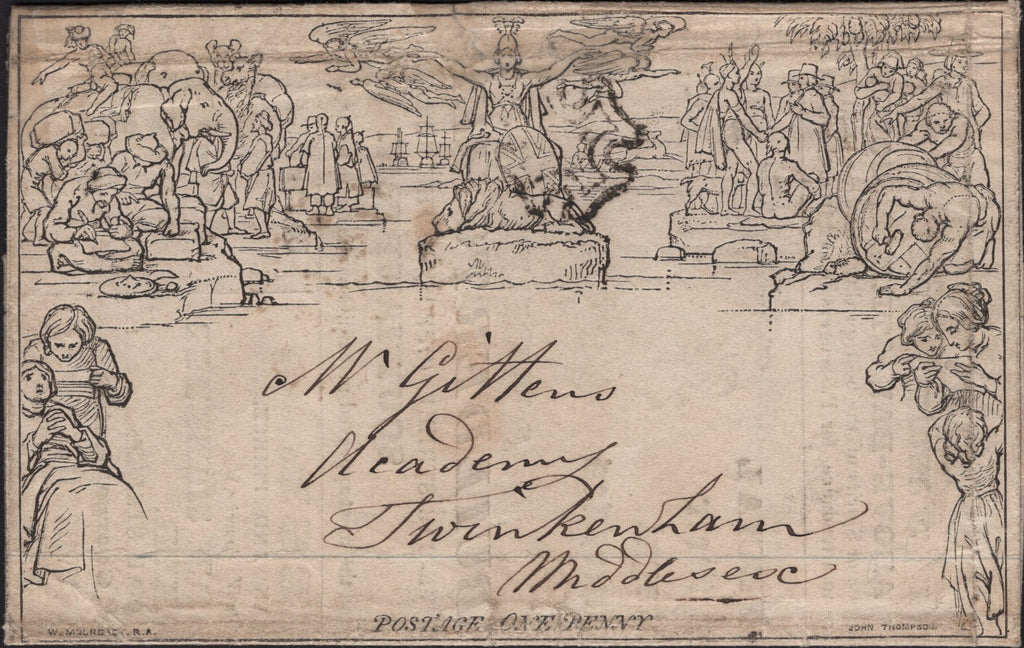 Mr Gittens
Academy
Twinkenham
Middlesex
POSTAGE ONE PENNY
W. MULREADY. R.A.
JOHN THOMPSON